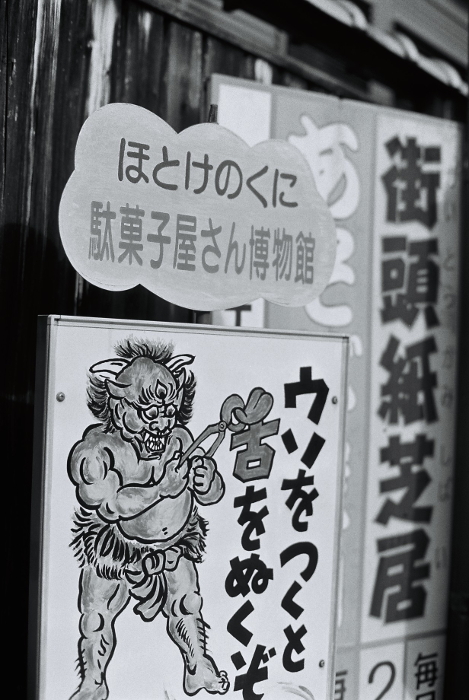 ほとけのくに
駄菓子屋さん博物館
ウソをつくと
舌をぬくぞ
街頭紙芝居
がいとうかみしばい
あ
毎
2